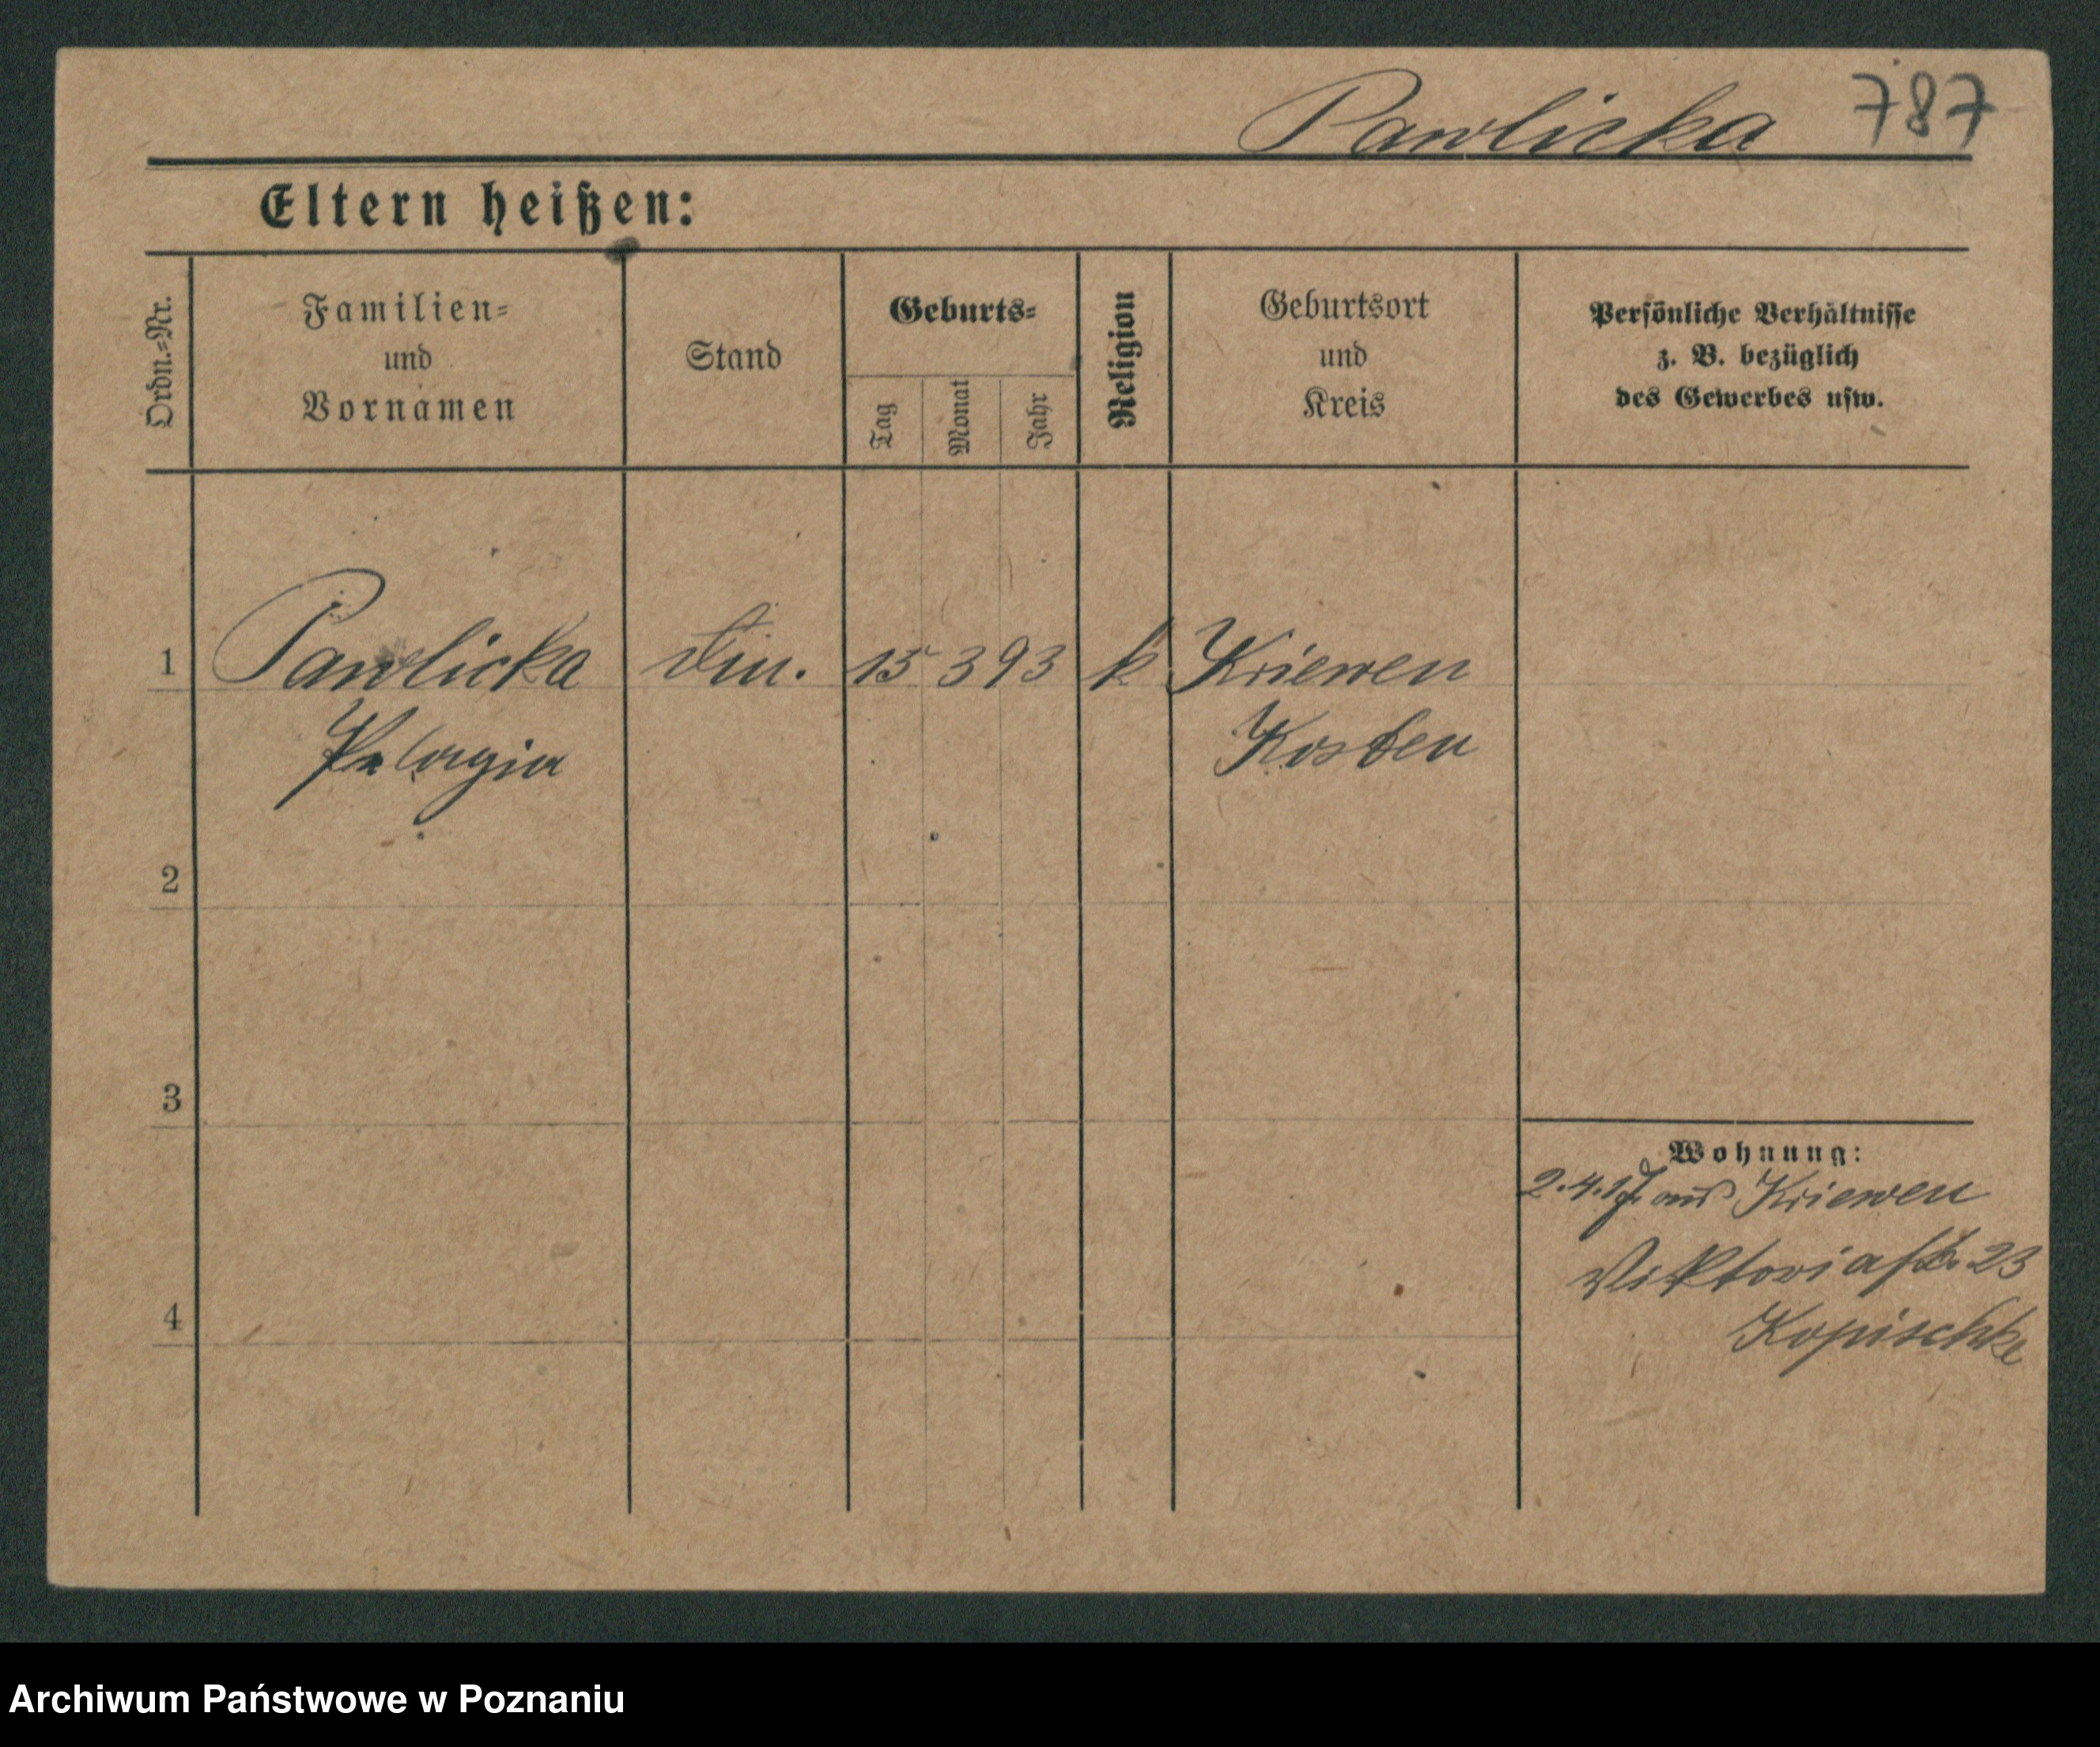 Pawlicka 787
Eltern heißen:
Ordn.=Nr.
Familien=
und
Vornamen
Stand
Geburts=
Tag
Monat
Jahr
Religion
Geburtsort
und
Kreis
Persönliche Verhältnisse
z. B. bezüglich
des Gewerbes usw.
1 Pawlicka 15 3 93 k Kriewen
Pelagia Kosten
2
3
4
Wohnung:
2.4.17. aus Kriewen
Viktoriastr. 23
Kopischke
Archiwum Państwowe w Poznaniu